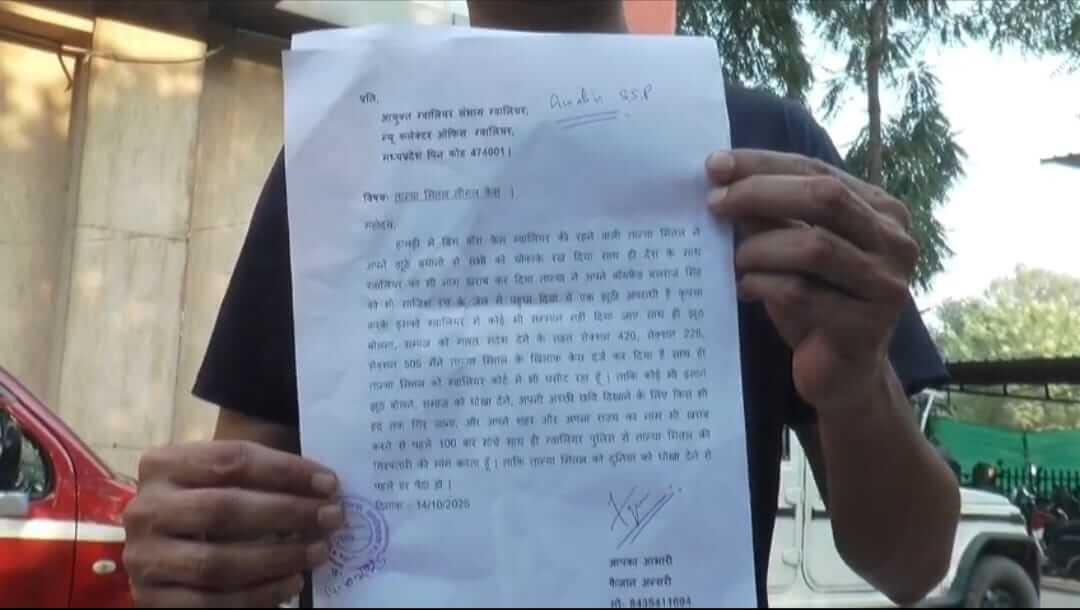 प्रति,
आयुक्त ग्वालियर संभाग ग्वालियर,
न्यू कलेक्टर ऑफिस ग्वालियर,
मध्यप्रदेश पिन कोड 474001 ।
S.S.P
विषयः तान्या मित्तल लीगल केस ।
महोदय,
हालही मे बिग बॉस फेम ग्वालियर की रहने वाली तान्या मित्तल ने
अपने झूठे बयानो से सभी को चौकाके रख दिया साथ ही देश के साथ
ग्वालियर का भी नाम खराब कर दिया तान्या ने अपने बॉयफ्रेंड बलराज सिंह
को भी साजिश रच के जेल मे पहुचा दिया ये एक झूठी अपराधी है कृपया
करके इसको ग्वालियर मे कोई भी सम्मान नही दिया जाए साथ ही झूठ
बोलना, समाज को गलत संदेश देने के तहत सेक्शन 420, सेक्शन
सेक्शन 505 मैंने तान्या मित्तल के खिलाफ केस दर्ज कर दिया है साथ ही
तान्या मित्तल को ग्वालियर कोर्ट मे भी घसीट रहा हूँ । ताकि कोई भी इंसान
झूठ बोलने, समाज को धोखा देने, अपनी अच्छी छवि दिखाने के लिए किस भी
हद तक गिर जाना, और अपने शहर और अपना राज्य का नाम भी खराब
करने से पहले 100 बार सोचे साथ ही ग्वालियर पुलिस से तान्या मित्तल की
गिरफ्तारी की मांग करता हूँ । ताकि तान्या मित्तल को दुनिया को धोखा देने से
पहले डर पैदा हो ।
दिनांक : 14/10/2025
आपका आभारी
फैजान अन्सारी
मो. 8435411694